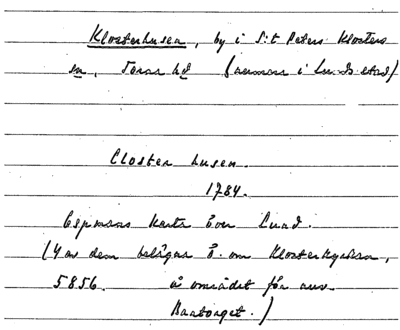 Klosterhusen, by i S:t Peters Klosters
sn, Torna hd (numera i Lunds stad)
Closter husen.
1784.
Espmans karta över Lund.
(4 av dem belägna ö. om Klosterkyrkan,
5856. å området för nuv.
Bantorget.)